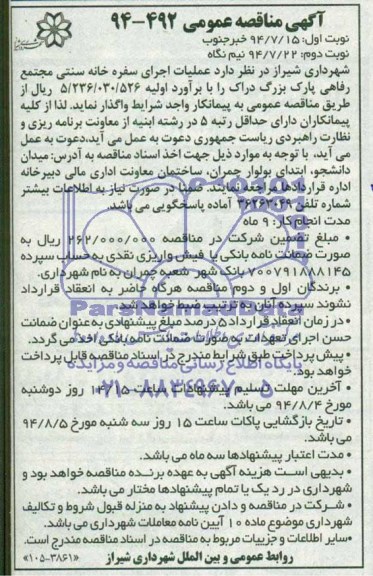 آگهی مناقصه عمومی ۴۹۲-۹۴
نوبت اول: ۹۴/۷/۱۵ خبرجنوب
نوبت دوم: ۹۴/۷/۲۲ نیم نگاه
شهرداری شیراز در نظر دارد عملیات اجرای سفره خانه سنتی مجتمع
رفاهی پارک بزرگ دراک را با برآورد اولیه ۵/۲۳۶/۰۳۰/۵۲۶ ریال از
طریق مناقصه عمومی به پیمانکار واجد شرایط واگذار نماید. لذا از کلیه
پیمانکاران دارای حداقل رتبه ۵ در رشته ابنیه از معاونت برنامه ریزی و
نظارت راهبردی ریاست جمهوری دعوت به عمل می آید،دعوت به عمل
می آید، با توجه به موارد ذیل جهت اخذ اسناد مناقصه به آدرس: میدان
دانشجو، ابتدای بولوار چمران، ساختمان معاونت اداری مالی دبیرخانه
اداره قراردادها مراجعه نمایند. ضمنا در صورت نیاز به اطلاعات بیشتر
شماره تلفن ۳۶۲۶۳۰۴۹ آماده پاسخگویی می باشد.
مدت انجام کار: ۹ ماه
• مبلغ تضمین شرکت در مناقصه ۲۶۲/۰۰۰/۰۰۰ ریال به
صورت ضمانت نامه بانکی یا فیش واریزی نقدی به حساب سپرده
۷۰۰۷۹۱۸۸۸۱۴۵ بانک شهر شعبه چمران به نام شهرداری.
• برندگان اول و دوم مناقصه هرگاه حاضر به انعقاد قرارداد
نشوند سپرده آنان به ترتیب ضبط خواهد شد.
• در زمان انعقاد قرارداد ۵ درصد مبلغ پیشنهادی به عنوان ضمانت
حسن اجرای تعهدات به صورت ضمانت نامه بانکی اخذ می گردد.
• پیش پرداخت طبق شرایط مندرج در اسناد مناقصه قابل پرداخت
خواهد بود.
• آخرین مهلت تسلیم پیشنهادات ساعت ۱۴/۱۵ روز دوشنبه
مورخ ۹۴/۸/۴ می باشد.
• تاریخ بازگشایی پاکات ساعت ۱۵ روز سه شنبه مورخ ۹۴/۸/۵
می باشد.
• مدت اعتبار پیشنهادها سه ماه می باشد.
• بدیهی است هزینه آگهی به عهده برنده مناقصه خواهد بود و
شهرداری در رد یک یا تمام پیشنهادها مختار می باشد.
• شرکت در مناقصه و دادن پیشنهاد به منزله قبول شروط و تکالیف
شهرداری موضوع ماده ۱۰ آیین نامه معاملات شهرداری می باشد.
• سایر اطلاعات و جزییات مربوط به مناقصه در اسناد مناقصه مندرج است.
روابط عمومی و بین الملل شهرداری شیراز «۱۰۵-۳۸۶۱»
ParsNamadData
پایگاه اطلاع رسانی مناقصه و مزایده
۰۲۱-۸۸۳۴۹۶۷۰-۵